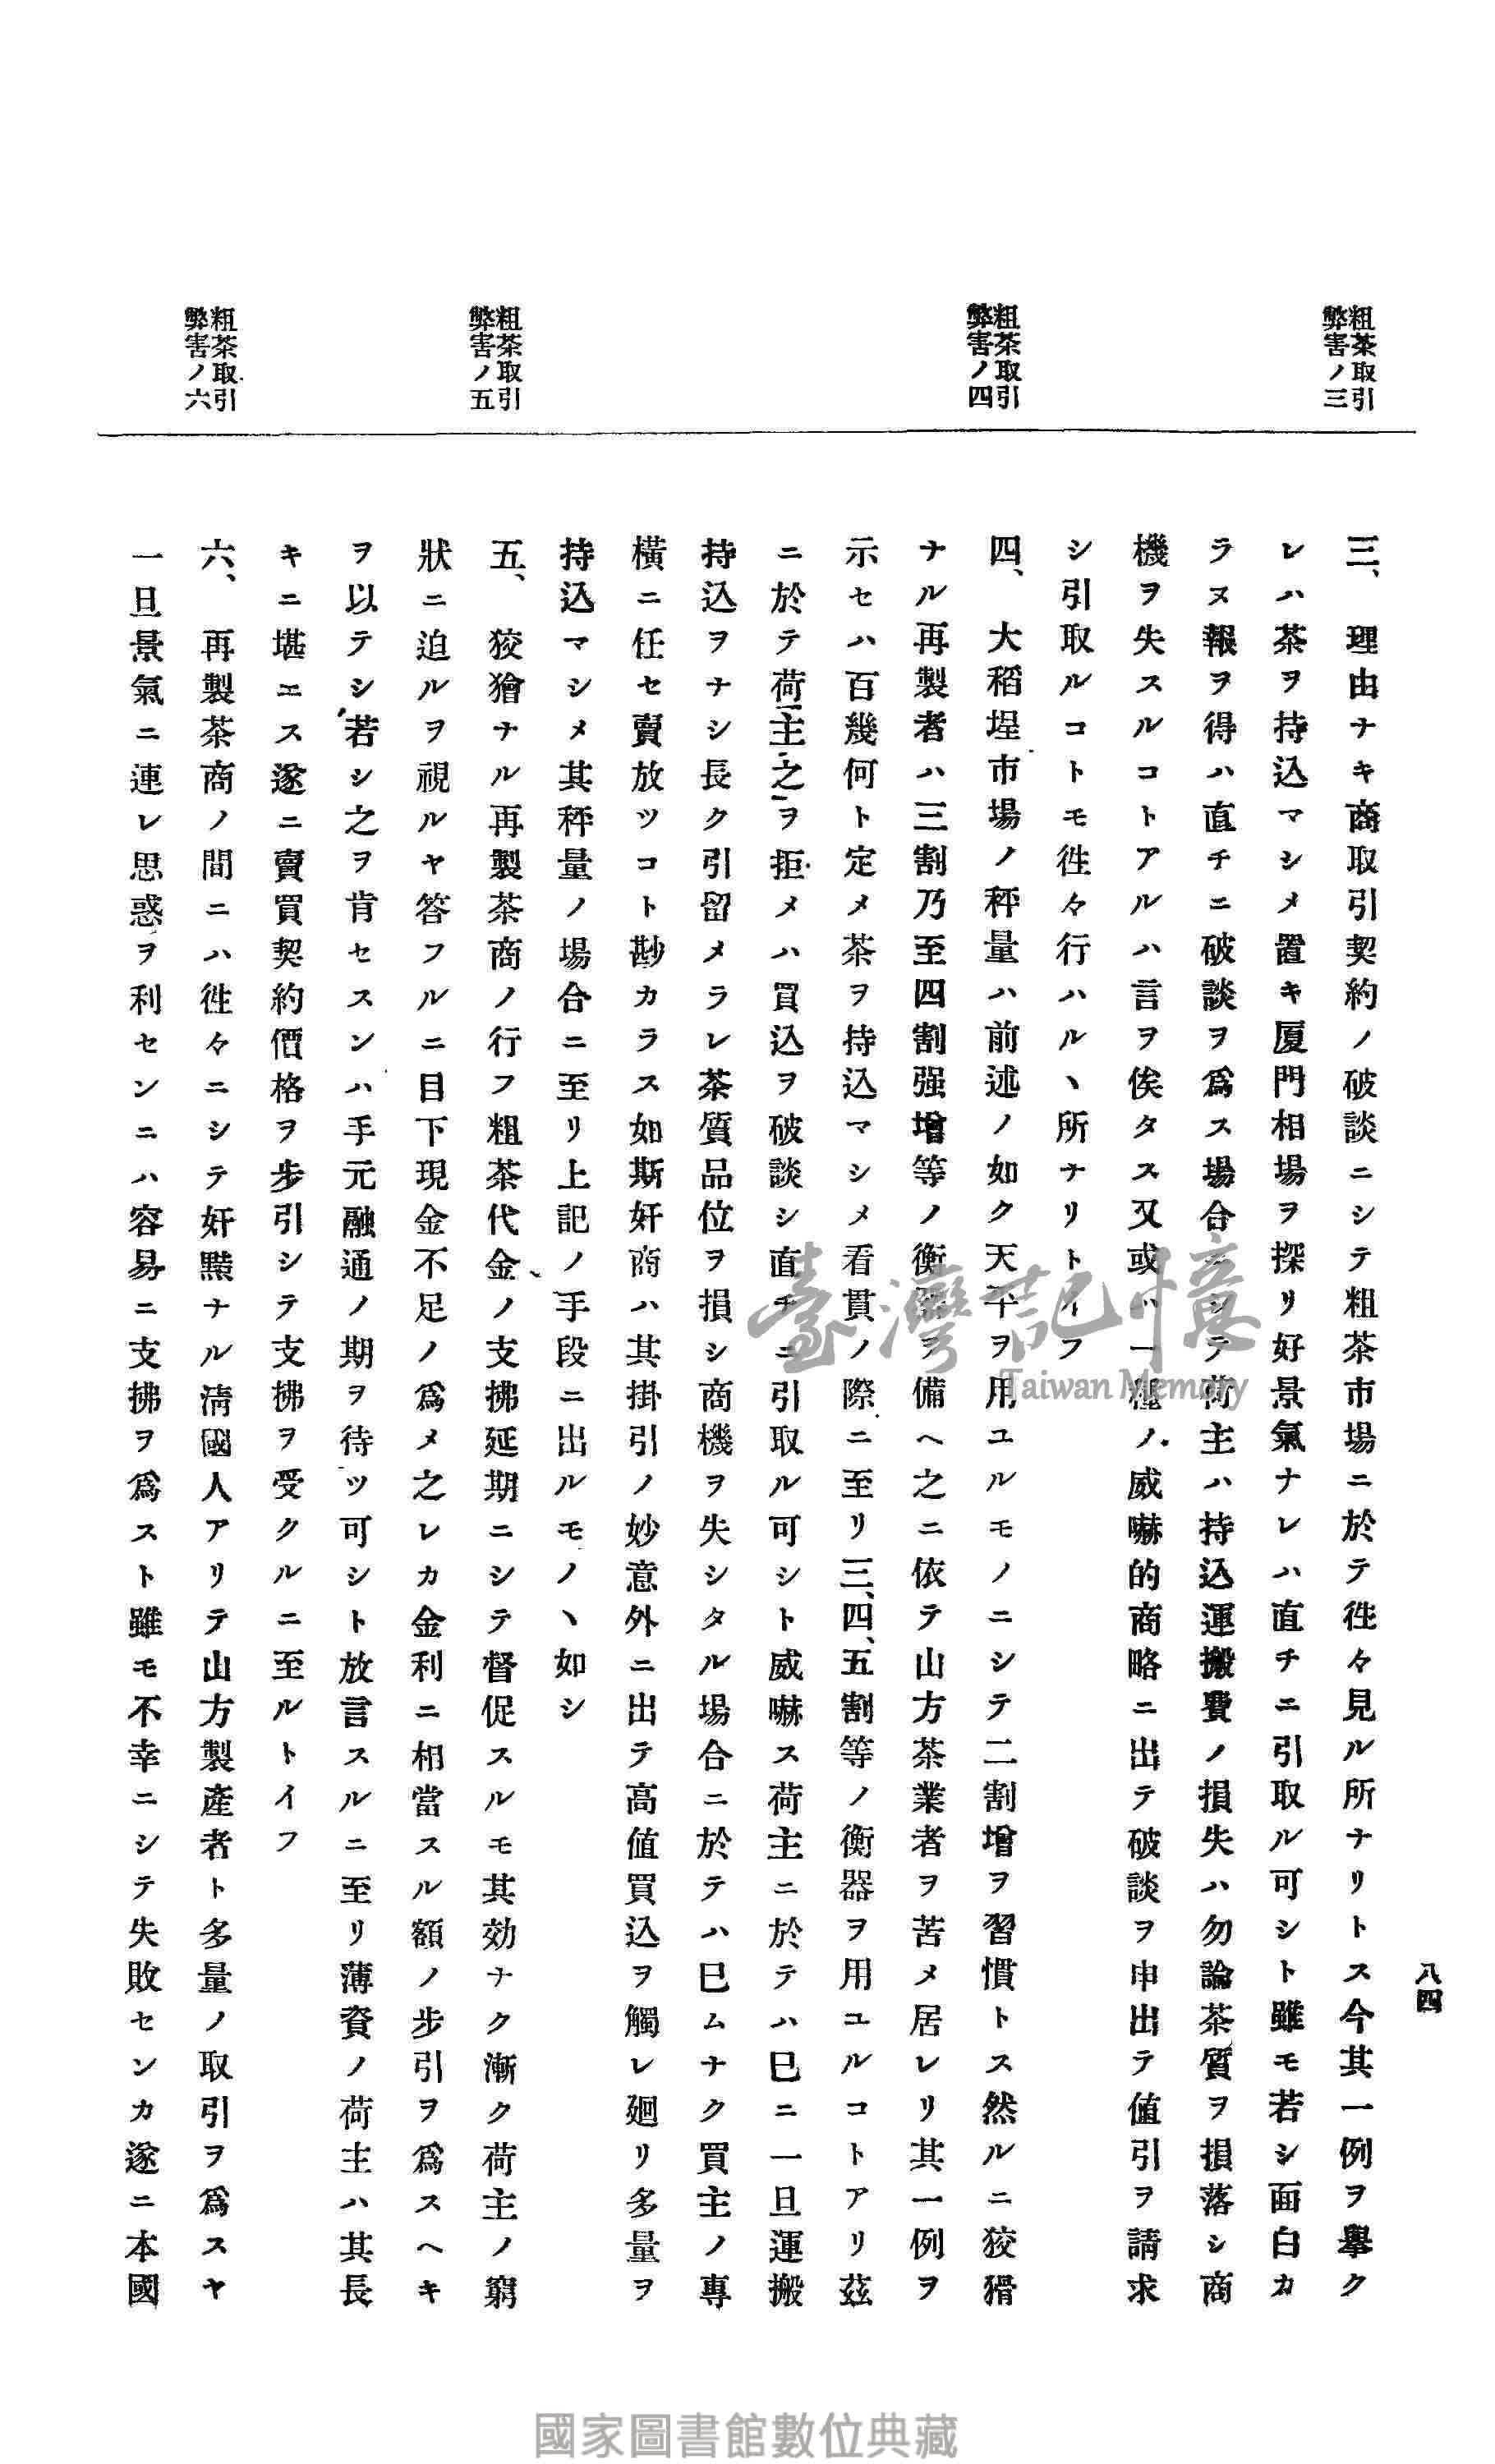 八四
粗茶取引
弊害ノ三
粗茶取引
弊害ノ四
粗茶取引
弊害ノ五
粗茶取引
弊害ノ六
三、理由ナキ商取引契約ノ破談ニシテ粗茶市場ニ於テ徃々見ル所ナリトス今其一例ヲ擧ク
レハ茶ヲ持込マシメ置キ厦門相場ヲ探リ好景氣ナレハ直チニ引取ル可シト雖モ若シ面白カ
ラヌ報ヲ得ハ直チニ破談ヲ爲ス場合ニシテ荷主ハ持込運搬費ノ損失ハ勿論茶質ヲ損落シ商
機ヲ失スルコトアルハ言ヲ俟タス又或ハ一種ノ威嚇的商略ニ出テ破談ヲ申出テ値引ヲ請求
シ引取ルコトモ徃々行ハルヽ所ナリトイフ
四、大稻埕市場ノ秤量ハ前述ノ如ク天平ヲ用ユルモノニシテ二割增ヲ習慣トス然ルニ狡猾
ナル再製者ハ三割乃至四割强增等ノ衡器ヲ備ヘ之ニ依テ山方茶業者ヲ苦メ居レリ其一例ヲ
示セハ百幾何ト定メ茶ヲ持込マシメ看貫ノ際ニ至リ三、四、五割等ノ衡器ヲ用ユルコトアリ茲
ニ於テ荷主之ヲ拒メハ買込ヲ破談シ直チニ引取ル可シト威嚇ス荷主ニ於テハ巳ニ一旦運搬
持込ヲナシ長ク引留メラレ茶質品位ヲ損シ商機ヲ失シタル場合ニ於テハ巳ムナク買主ノ專
橫ニ任セ賣放ツコト尠カラス如斯奸商ハ其掛引ノ妙意外ニ出テ高値買込ヲ觸レ廻リ多量ヲ
持込マシメ其秤量ノ場合ニ至リ上記ノ手段ニ出ルモノヽ如シ
五、狡獪ナル再製茶商ノ行フ粗茶代金ノ支拂延期ニシテ督促スルモ其効ナク漸ク荷主ノ窮
狀ニ迫ルヲ視ルヤ答フルニ目下現金不足ノ爲メ之レカ金利ニ相當スル額ノ步引ヲ爲スヘキ
ヲ以テシ若シ之ヲ肯セスンハ手元融通ノ期ヲ待ツ可シト放言スルニ至リ薄資ノ荷主ハ其長
キニ堪エス遂ニ賣買契約價格ヲ步引シテ支拂ヲ受クルニ至ルトイフ
六、再製茶商ノ間ニハ徃々ニシテ奸黠ナル淸國人アリテ山方製產者ト多量ノ取引ヲ爲スヤ
一旦景氣ニ連レ思惑ヲ利センニハ容易ニ支拂ヲ爲スト雖モ不幸ニシテ失敗センカ遂ニ本國
臺灣記憶
Taiwan Memory
國家圖書館數位典藏